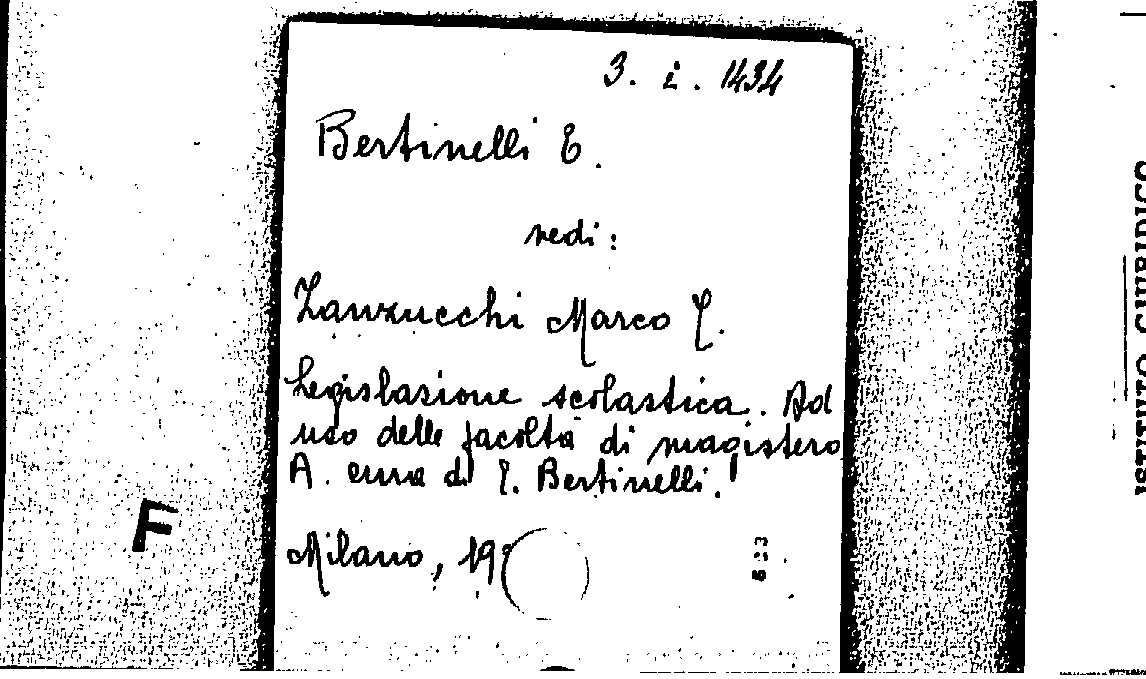 3. i. 1434
Bertinelli E.
vedi:
Zanzucchi Marco T.
Legislazione scolastica. Ad
uso delle facoltà di magistero
A. cura di E. Bertinelli.
F
Milano, 19
ISTITUTO GIURIDICO